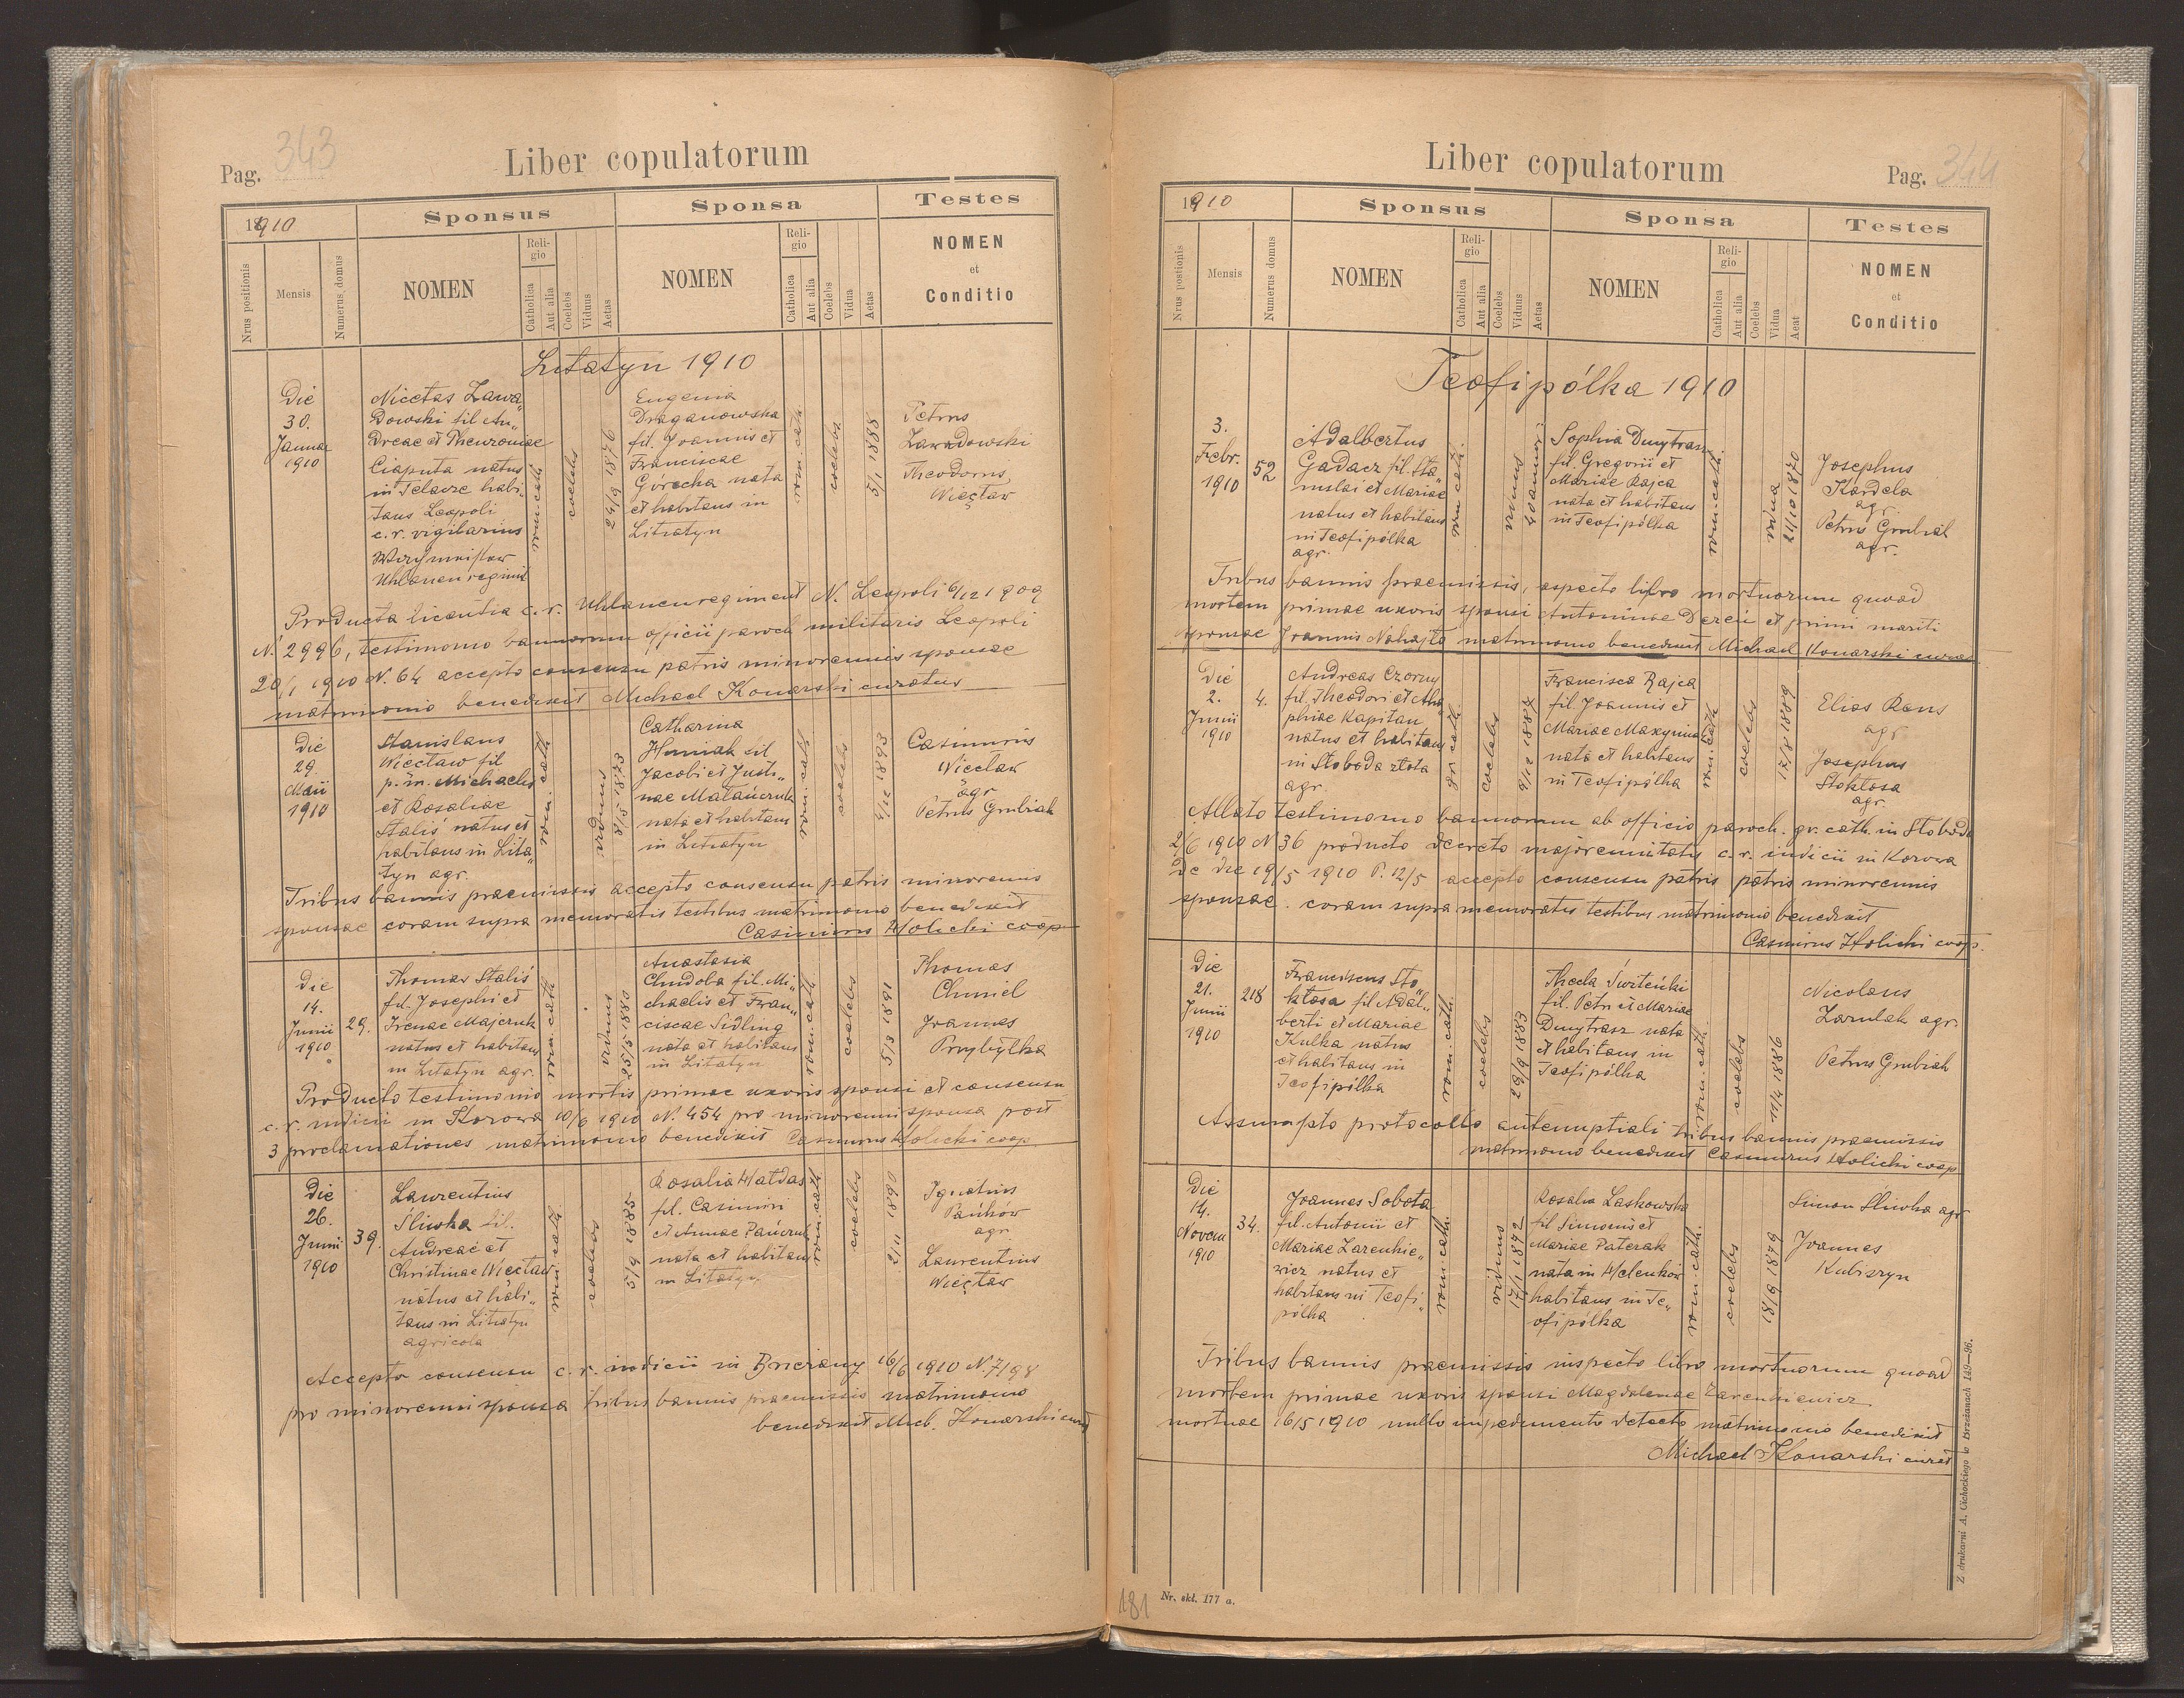 Pag. 343
Liber copulatorum
1910
Sponsus
Sponsa
Testes
Nrus positionis
Mensis
Numerus domus
NOMEN
Religio
Catholica
Aut alia
Coelebs
Viduus
Aetas
NOMEN
Religio
Catholica
Aut alia
Coelebs
Vidua
Aetas
NOMEN
et
Conditio
Litatyn 1910
Die
30.
Januae
1910
Nicetas Zawa„
dowski fil An„
dreae et Theuroniae
Ciaputa natus
in Telacze habi„
tans Leopoli
c. r. vigilarius
Uhlanen regimt
rom. cath
coelebs
24/9 1876
Eugenia
Draganowska
fil. Joannis et
Franciscae
Górecka nata
et habitans in
Litiatyn
rom. cath.
coelebs
5/1 1888
Petrus
Zawadowski
Theodorus
Więcław
Producta licentia c. r. Uhlanenregiment N. Leopoli 6/12 1909
N. 2996, testimonio bannorum officii paroch militaris Leopoli
20/1 1910 N. 64 accepto consensu patris minorennis sponsae
matrimonio benedixit Michael Konarski curatus
Die
29
Maii
1910
Stanislaus
Więcław fil
p. m. Michaelis
et Rosaliae
Staliś natus et
habitans in Lita„
tyn agr.
rom. cath
viduus
8/5 1873
Catharina
Humiak fil
Jacobi et Justi„
nae Matańczuk
nata et habitans
in Litiatyn
rom. cath
coelebs
4/12 1893
Casimirus
Więcław
agr
Petrus Grubiak
Tribus bannis praemissis accepto consensu patris minorennis
sponsae coram supra memoratis testibus matrimonio benedixit
Casimirus Holicki coop
Die
14.
Junii
1910
29.
Thomas Staliś
fil. Josephi et
Irenae Majczuk
natus et habitans
in Litatyn agr.
rom. cath
viduus
25/5 1880
Anastasia
Chudoba fil. Mi„
chaelis et Fran„
ciscae Sidling
nata et habitans
in Litatyn
rom. cath
coelebs
5/3 1891
Thomas
Chmiel
Joannes
Przybyłka
Producto testimonio mortis primae uxoris sponsi et consensu
c. r. iudicii in Kozowa 10/6 1910 N. 454 pro minorenni sponsa post
3 proclamationes matrimonio benedixit Casimirus Holicki coop
Die
26.
Junii
1910
39.
Laurentius
Śliwka fil.
Andreae et
Christinae Więcław
natus et habi„
tans in Litiatyn
agricola
rom. cath.
coelebs
5/9 1885
Rosalia Hałdas
fil. Casimiri
et Annae Pańczuk
nata et habitans
in Litatyn
rom. cath
coelebs
2/11 1890
Ignatius
Pańków
agr
Laurentius
Więcław
Accepto consensu c. r. iudicii in Brzeżany 16/6 1910 N. 7/98
pro minorenni sponsa tribus bannis praemissis matrimonio
benedixit Mich. Konarski curat
Liber copulatorum
Pag. 344
1910
Sponsus
Sponsa
Testes
Nrus postionis
Mensis
Numerus domus
NOMEN
Religio
Catholica
Aut alia
Coelebs
Viduus
Aetas
NOMEN
Religio
Catholica
Aut alia
Coelebs
Vidua
Aeat
NOMEN
et
Conditio
Teofipólka 1910
3.
Febr.
1910
52
Adalbertus
Gadacz fil. Sta„
nislai et Mariae
natus et habitans
in Teofipólka
agr.
rom cath.
viduus
40 annor.
Sophia Dmytrasz
fil. Gregorii et
Mariae Rajca
nata et habitans
in Teofipólka
rom. cath.
vidua
24/10 1870
Josephus
Kardela
agr.
Petrus Grubiak
agr.
Tribus bannis praemissis, aspecto libro mortuorum quoad
mortem primae uxoris sponsi Antoninae Dereń et primi mariti
sponsae Joannis Nahajło matrimonio benedixit Michael Konarski curat
Die
2.
Junii
1910
4.
Andreas Czorny
fil. Theodori et Aha„
phiae Kapitan
natus et habitans
in Słoboda złota
agr.
gr. cath.
coelebs
9/12 1887
Francisca Rajca
fil. Joannis et
Mariae Maxymiw
nata et habitans
in Teofipólka
rom. cath
coelebs
17/8 1889
Elias Rens
agr
Josephus
Stokłosa
agr.
Allato testimonio bannorum ab officio paroch. gr. cath. in Słoboda
2/6 1910 N 36 producto decreto majorennitatis c. r. iudicii in Kozowa
de die 19/5 1910 P. 12/5 accepto consensu patris patris minorennis
sponsae coram supra memoratis testibus matrimonio benedixit
Casimirus Holicki coop.
Die
21.
Junii
1910
218
Franciscus Sto„
kłosa fil Adal„
berti et Mariae
Kulka natus
et habitans in
Teofipólka
rom. cath.
coelebs
29/9 1883
Thecla Switeńki
fil. Petri et Mariae
Dmytrasz nata
et habitans in
Teofipólka
rom. cath.
coelebs
11/4 1886
Nicolaus
Zarulak agr.
Petrus Grubiak
Assumpto protocollo antenuptiali tribus bannis praemissis
matrimonio benedixit Casimirus Holicki coop
Die
14.
Novem
1910
34.
Joannes Sobota
fil. Antonii et
Mariae Zarenkie„
wicz natus et
habitans in Teofi„
pólka
rom. cath.
viduus
17/1 1872
Rosalia Laskowska
fil Simonis et
Mariae Paterak
nata in Helenków
habitans in Te„
ofipólka
rom. cath.
coelebs
18/9 1879
Simon Śliwka agr
Joannes
Kubiszyn
Tribus bannis praemissis inspecto libro mortuorum quoad
mortem primae uxoris sponsi Magdalenae Zarenkiewicz
mortuae 16/5 1910 nullo impedimento detecto matrimonio benedixit
Michael Konarski curat
Z drukarni A. Cichockiego w Brzeżanach 149—96.
181
Nr. skł. 177 a.